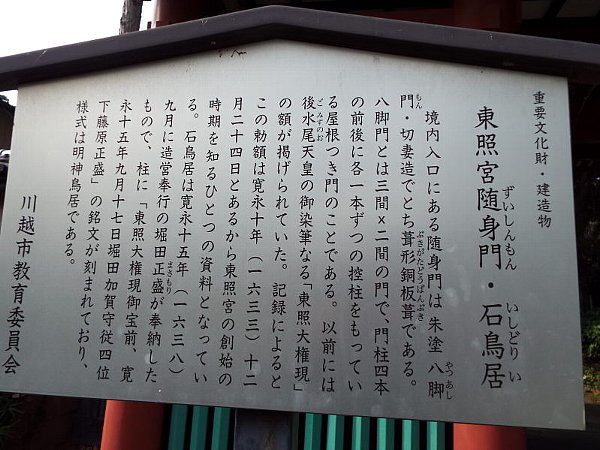 重要文化財・建造物
東照宮随身門・石鳥居
ずいしんもん
いしどりい
境内入口にある随身門は朱塗八脚
やつあし
門・切妻造でとち葺形銅板葺である。
もん
ぶきがたどうばんぶき
八脚門とは三間×二間の門で、門柱四本
の前後に各一本ずつの控柱をもってい
る屋根つき門のことである。以前には
後水尾天皇の御染筆なる「東照大権現」
ごみずのお
の額が掲げられていた。記録によると
この勅額は寛永十年(一六三三)十二
月二十四日とあるから東照宮の創始の
時期を知るひとつの資料となってい
る。石鳥居は寛永十五年(一六三八)
九月に造営奉行の堀田正盛が奉納した
まさもり
もので、柱に「東照大権現御宝前、寛
永十五年九月十七日堀田加賀守従四位
下藤原正盛」の銘文が刻まれており、
様式は明神鳥居である。
川越市教育委員会